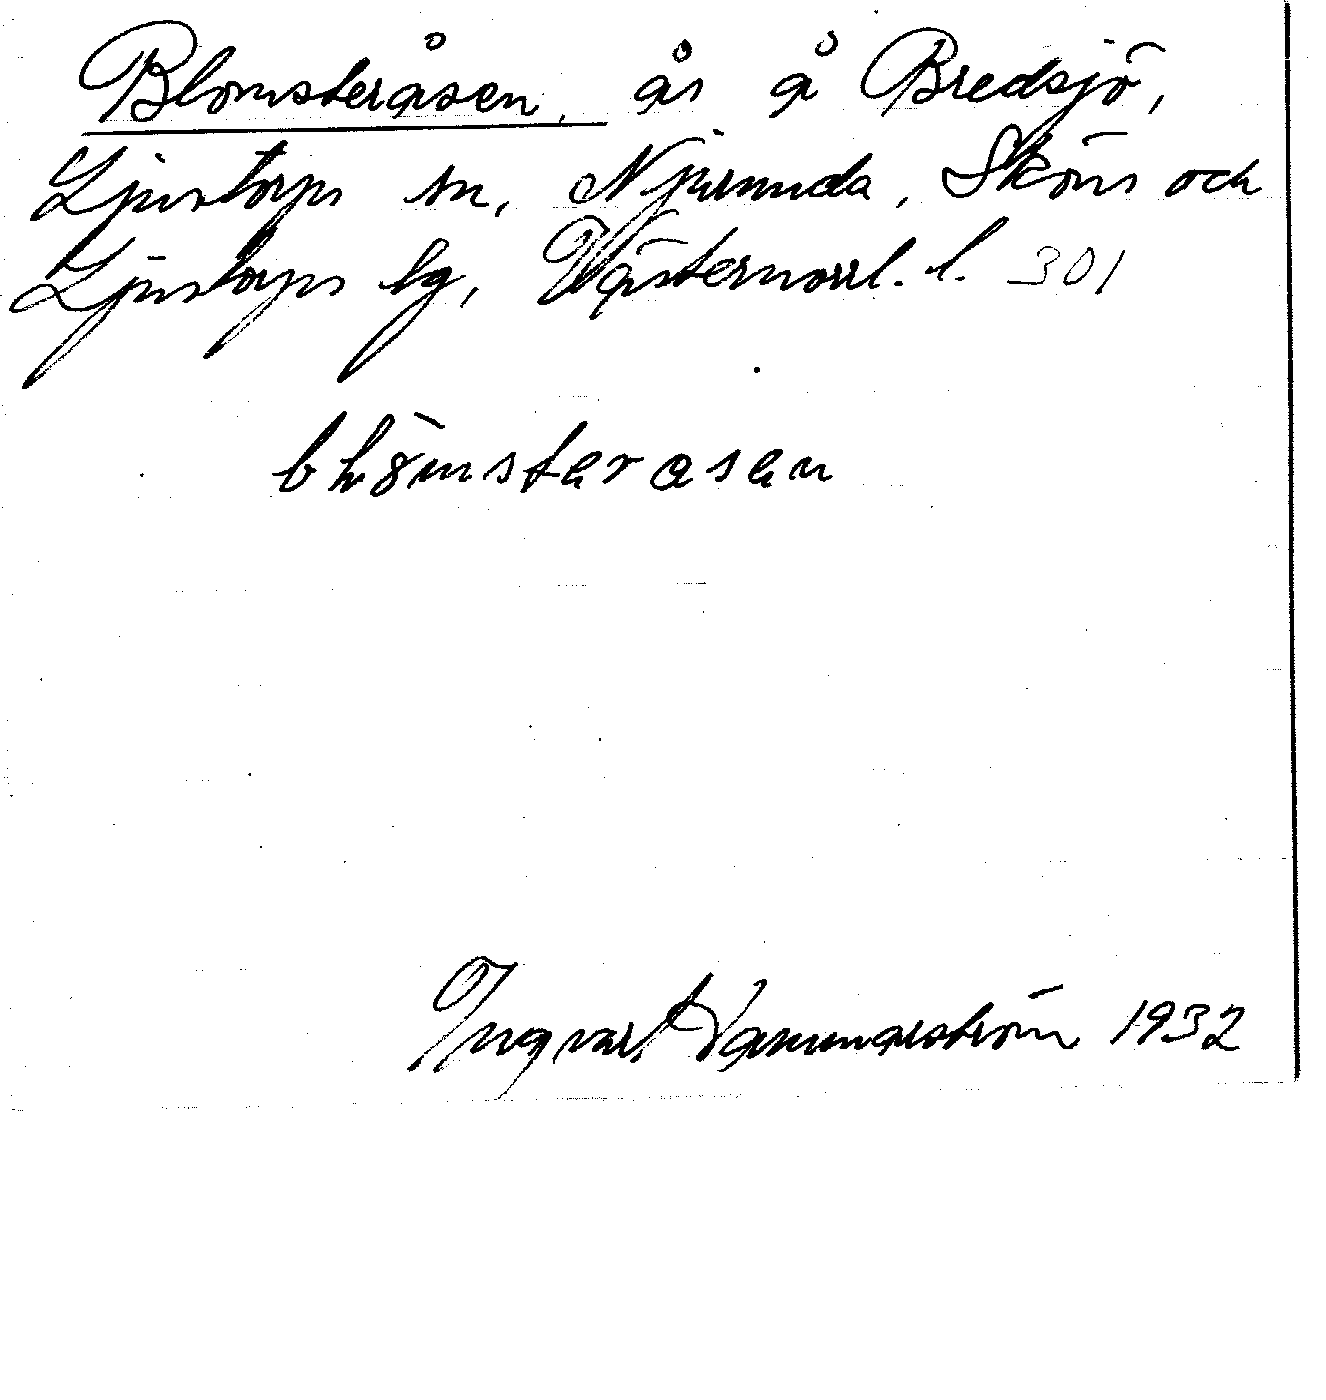 Blomsteråsen, ås å Bredsjö,
Ljustorps sn, Njurunda, Sköns och
Ljustorps tg, Västernorrl. l. 301
Ingvar Hammarström 1932